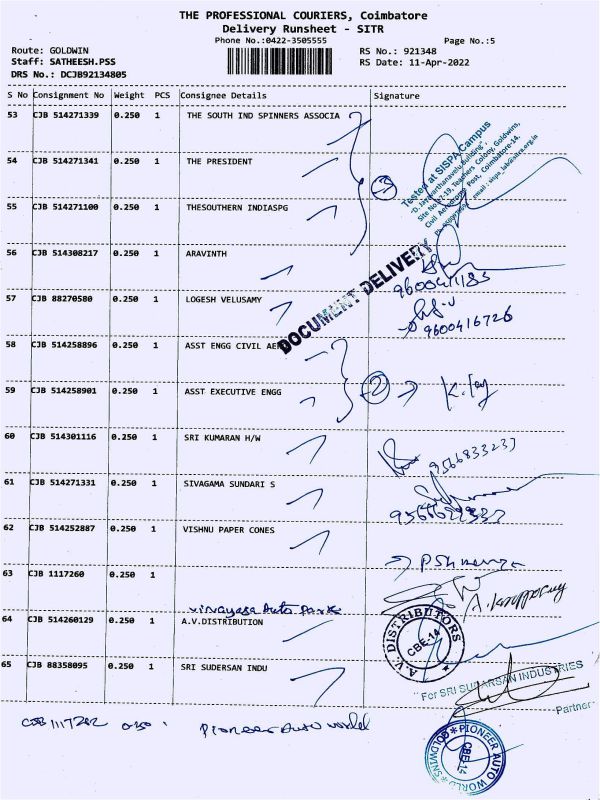 THE PROFESSIONAL COURIERS, Coimbatore
Delivery Runsheet - SITR
Phone No.:0422-3505555
Page No.:5
Route: GOLDWIN
RS No.: 921348
Staff: SATHEESH.PSS
RS Date: 11-Apr-2022
DRS No.: DCJB92134805
S No Consignment No Weight PCS Consignee Details Signature
53 CJB 514271339 0.250 1 THE SOUTH IND SPINNERS ASSOCIA
54 CJB 514271341 0.250 1 THE PRESIDENT
3
Tested at SISPA Campus
Civil Aerodrome Post, Coimbatore-14.
55 CJB 514271100 0.250 1 THESOUTHERN INDIASPG
DOCUMENT DELIVERY
56 CJB 514308217 0.250 1 ARAVINTH
57 CJB 88270580 0.250 1 LOGESH VELUSAMY
9600416726
58 CJB 514258896 0.250 1 ASST ENGG CIVIL AE
59 CJB 514258901 0.250 1 ASST EXECUTIVE ENGG
2
60 CJB 514301116 0.250 1 SRI KUMARAN H/W
9566833237
61 CJB 514271331 0.250 1 SIVAGAMA SUNDARI S
62 CJB 514252887 0.250 1 VISHNU PAPER CONES
63 CJB 1117260 1
Vinayaga Auto Parts
64 CJB 514260129 0.250 1 A.V.DISTRIBUTION
A.V. DISTRIBUTORS
CBE-14
65 CJB 88358095 0.250 1 SRI SUDERSAN INDU
For SRI SUDARSAN INDUSTRIES
Partner
CJB 1117262 Pioneer Auto world
PIONEER AUTO WORLD
GOLDWINS
CBE-14